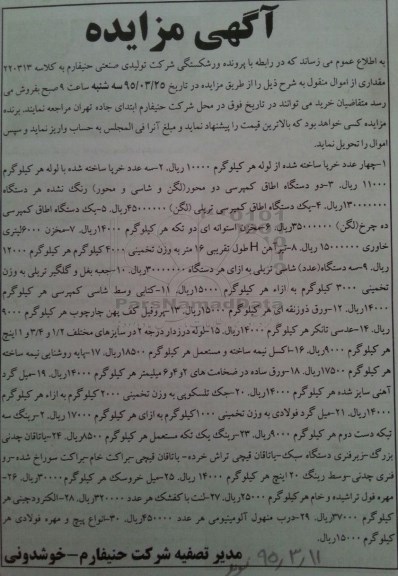 آگهی مزایده
به اطلاع عموم می رساند که در رابطه با پرونده ورشکستگی شرکت تولیدی صنعتی حنیفارم به کلاسه ۲۲۰۳۱۳
مقداری از اموال منقول به شرح ذیل را از طریق مزایده در تاریخ ۹۵/۰۳/۲۵ سه شنبه ساعت ۹ صبح بفروش می
رسد متقاضیان خرید می توانند در تاریخ فوق در محل شرکت حنیفارم ابتدای جاده تهران مراجعه نمایند. برنده
مزایده کسی خواهد بود که بالاترین قیمت را پیشنهاد نماید و مبلغ آنرا فی المجلس به حساب واریز نماید و سپس
اموال را تحویل نماید.
۱-چهار عدد خرپا ساخته شده از لوله هر کیلوگرم ۱۰۰۰۰ ریال. ۲-سه عدد خرپا ساخته شده با لوله هر کیلوگرم
۱۱۰۰۰ ریال. ۳-دو دستگاه اطاق کمپرسی دو محور(لگن و شاسی و محور) رنگ نشده هر دستگاه
۱۳۰۰۰۰۰۰۰ریال. ۴-یک دستگاه اطاق کمپرسی تریلی (لگن) ۴۵۰۰۰۰۰۰ریال. ۵-یک دستگاه اطاق کمپرسی
ده چرخ(لگن) ۳۵۰۰۰۰۰۰ریال. ۶-مخزن استوانه ای دو تکه هر کیلوگرم ۱۴۰۰۰ریال. ۷-مخزن ۶۰۰۰لیتری
خاوری ۱۵۰۰۰۰۰۰ ریال. ۸-تیرآهن H طول تقریبی ۱۶ متر به وزن تخمینی ۴۰۰۰ کیلوگرم هر کیلوگرم ۱۲۰۰۰
ریال. ۹-سه دستگاه(عدد) شاسی تریلی به ازای هر دستگاه ۳۰۰۰۰۰۰۰ ریال. ۱۰-جعبه بغل و گلگیر تریلی به وزن
تخمینی ۳۰۰۰ کیلوگرم به ازاء هر کیلوگرم ۱۵۰۰۰ریال. ۱۱-کتابی وسط شاسی کمپرسی هر کیلوگرم
۱۴۰۰۰ریال. ۱۲-ورق ذوزنقه ای هر کیلوگرم ۱۵۰۰۰ریال. ۱۳-پروفیل کف پهن چارچوب هر کیلوگرم ۹۰۰۰
ریال. ۱۴-عدسی تانکر هر کیلوگرم ۱۴۰۰۰ریال. ۱۵-لوله درزدار درجه ۲ در سایزهای مختلف ۱/۲ و ۳/۴ و ۱ اینچ
هر کیلوگرم ۹۰۰۰ریال. ۱۶-اکسل نیمه ساخته و مستعمل هر کیلوگرم ۱۸۵۰۰ریال. ۱۷-پایه روشنایی نیمه ساخته
هر کیلوگرم ۱۷۵۰۰ریال. ۱۸-ورق ساده در ضخامت های ۲و۴و۶ میلیمتر هر کیلوگرم ۱۴۰۰۰ریال. ۱۹-میل گرد
آهنی سایز شده هر کیلوگرم ۱۴۰۰۰ریال. ۲۰-جک تلسکوپی به وزن تخمینی ۲۰۰۰ کیلوگرم به ازاء هر کیلوگرم
۱۴۰۰۰ریال. ۲۱-میل گرد فولادی به وزن تخمینی ۱۰۰۰کیلوگرم به ازای هر کیلوگرم ۱۷۰۰۰ ریال. ۲-رینگ سه
تیکه دست دوم هر کیلوگرم ۹۰۰۰ریال. ۲۳-رینگ یک تکه مستعمل هر کیلوگرم ۸۵۰۰ریال. ۲۴-یاتاقان چدنی
بزرگ-زیرفنری دستگاه سبک-یاتاقان قیچی تراش خرده- یاتاقان قیچی-براکت خام-براکت سوراخ شده-رو
فنری چدنی-وسط رینگ ۲۰ اینچ هر کیلوگرم ۱۴۰۰۰ ریال. ۲۵-میل خروسک هر کیلوگرم ۳۰۰۰۰ریال. ۲۶-
مهره فول تراشیده و خام هر کیلوگرم ۲۵۰۰۰ریال. ۲۷-لنت با کفشک هر عدد ۳۲۰۰۰۰ ریال. ۲۸-الکترودچینی هر
کیلوگرم ۳۷۰۰۰ریال. ۲۹-درب منهول آلومینیومی هر عدد ۴۵۰۰۰۰ریال. ۳۰-انواع پیچ و مهره فولادی هر
کیلوگرم ۱۵۰۰۰ریال.
مدیر تصفیه شرکت حنیفارم-خوشدونی
۹۵،۳،۱۱
ParsNamadData